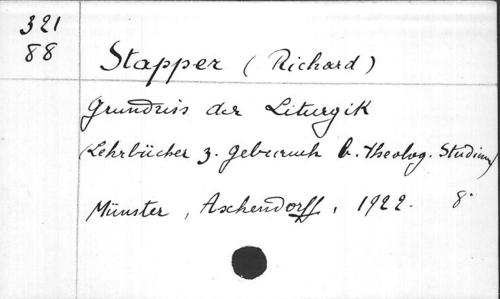 321
88
Stapper (Richard)
Grundriss der Liturgik
(Lehrbücher z. Gebrauch b. theolog. Studium)
Münster, Aschendorff, 1922. 8°